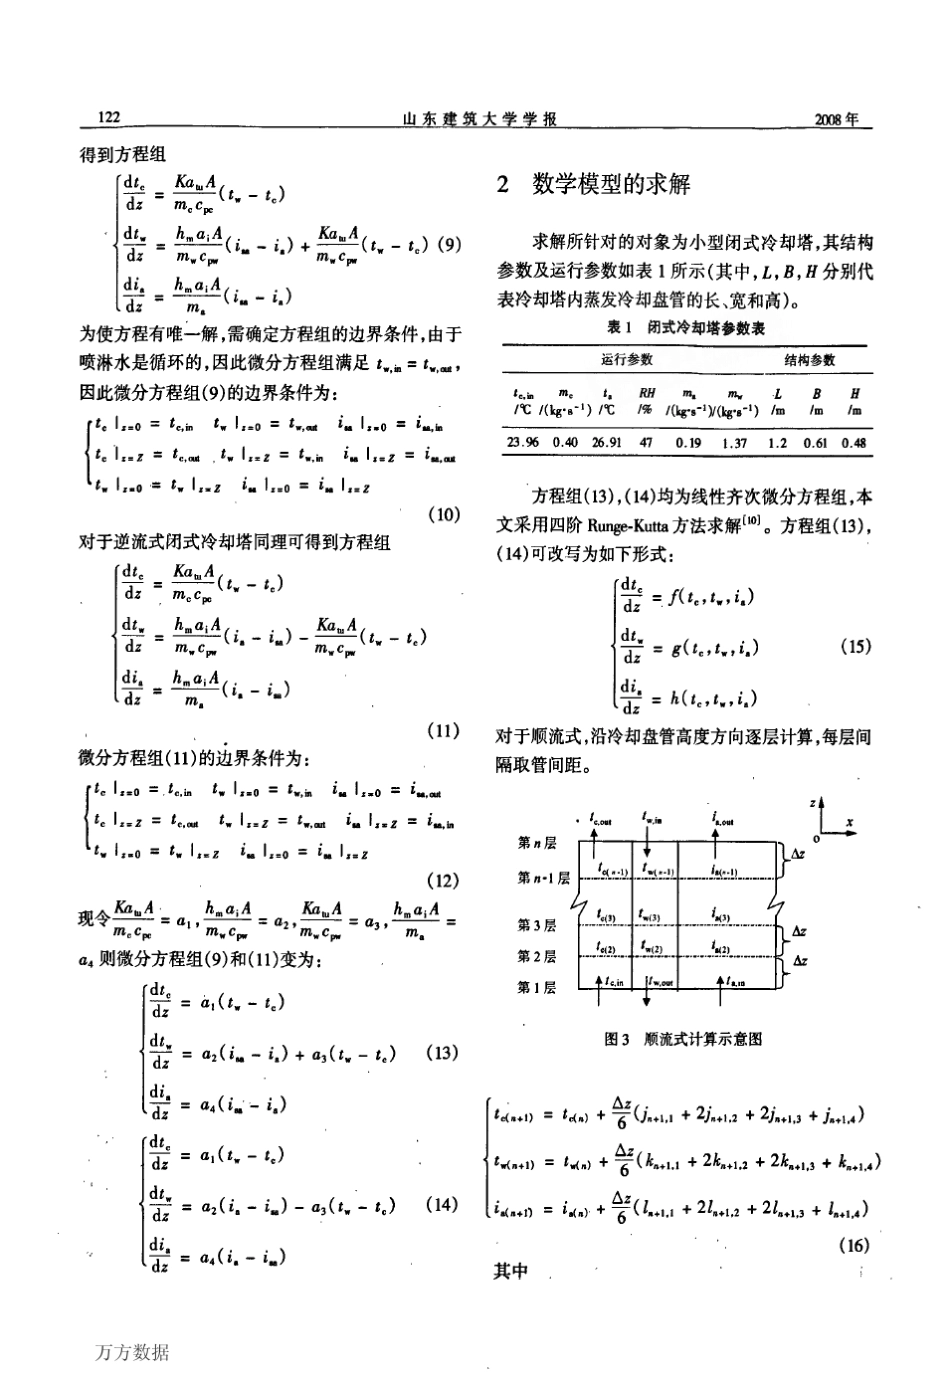 122
山东建筑大学学报
2008年
得到方程组
dt_c/dz = (Ka_tu A)/(m_c c_pc) (t_w - t_c)
dt_w/dz = (h_m a_i A)/(m_w c_pw) (i_sa - i_a) + (Ka_tu A)/(m_w c_pw) (t_w - t_c) (9)
di_a/dz = (h_m a_i A)/m_a (i_sa - i_a)
为使方程有唯一解,需确定方程组的边界条件,由于
喷淋水是循环的,因此微分方程组满足 t_w,in = t_w,out,
因此微分方程组(9)的边界条件为:
t_c |z=0 = t_c,in t_w |z=0 = t_w,out i_sa |z=0 = i_sa,in
t_c |z=Z = t_c,out t_w |z=Z = t_w,in i_sa |z=Z = i_sa,out
t_w |z=0 = t_w |z=Z i_sa |z=0 = i_sa |z=Z
(10)
对于逆流式闭式冷却塔同理可得到方程组
dt_c/dz = (Ka_tu A)/(m_c c_pc) (t_w - t_c)
dt_w/dz = (h_m a_i A)/(m_w c_pw) (i_a - i_sa) - (Ka_tu A)/(m_w c_pw) (t_w - t_c)
di_a/dz = (h_m a_i A)/m_a (i_a - i_sa)
(11)
微分方程组(11)的边界条件为:
t_c |z=0 = t_c,in t_w |z=0 = t_w,in i_sa |z=0 = i_sa,out
t_c |z=Z = t_c,out t_w |z=Z = t_w,out i_sa |z=Z = i_sa,in
t_w |z=0 = t_w |z=Z i_sa |z=0 = i_sa |z=Z
(12)
现令 (Ka_tu A)/(m_c c_pc) = a_1, (h_m a_i A)/(m_w c_pw) = a_2, (Ka_tu A)/(m_w c_pw) = a_3, (h_m a_i A)/m_a =
a_4 则微分方程组(9)和(11)变为:
dt_c/dz = a_1(t_w - t_c)
dt_w/dz = a_2(i_sa - i_a) + a_3(t_w - t_c) (13)
di_a/dz = a_4(i_sa - i_a)
dt_c/dz = a_1(t_w - t_c)
dt_w/dz = a_2(i_a - i_sa) - a_3(t_w - t_c) (14)
di_a/dz = a_4(i_a - i_sa)
2 数学模型的求解
求解所针对的对象为小型闭式冷却塔,其结构
参数及运行参数如表1所示(其中,L,B,H分别代
表冷却塔内蒸发冷却盘管的长、宽和高)。
表1 闭式冷却塔参数表
运行参数 结构参数
t_c,in m_c t_a RH m_a m_w L B H
/℃ /(kg·s⁻¹) /℃ /% /(kg·s⁻¹) /(kg·s⁻¹) /m /m /m
23.96 0.40 26.91 47 0.19 1.37 1.2 0.61 0.48
方程组(13),(14)均为线性齐次微分方程组,本
文采用四阶 Runge-Kutta 方法求解[10]。方程组(13),
(14)可改写为如下形式:
dt_c/dz = f(t_c,t_w,i_a)
dt_w/dz = g(t_c,t_w,i_a) (15)
di_a/dz = h(t_c,t_w,i_a)
对于顺流式,沿冷却盘管高度方向逐层计算,每层间
隔取管间距。
t_c,out t_w,in i_a,out z x o
第n层 Δz
第n-1层 t_c(n-1) t_w(n-1) i_a(n-1)
第3层 t_c(3) t_w(3) i_a(3) Δz
第2层 t_c(2) t_w(2) i_a(2) Δz
第1层 t_c,in t_w,out t_a,in
图3 顺流式计算示意图
t_c(n+1) = t_c(n) + Δz/6 (j_n+1,1 + 2j_n+1,2 + 2j_n+1,3 + j_n+1,4)
t_w(n+1) = t_w(n) + Δz/6 (k_n+1,1 + 2k_n+1,2 + 2k_n+1,3 + k_n+1,4)
i_a(n+1) = i_a(n) + Δz/6 (l_n+1,1 + 2l_n+1,2 + 2l_n+1,3 + l_n+1,4)
(16)
其中
万方数据